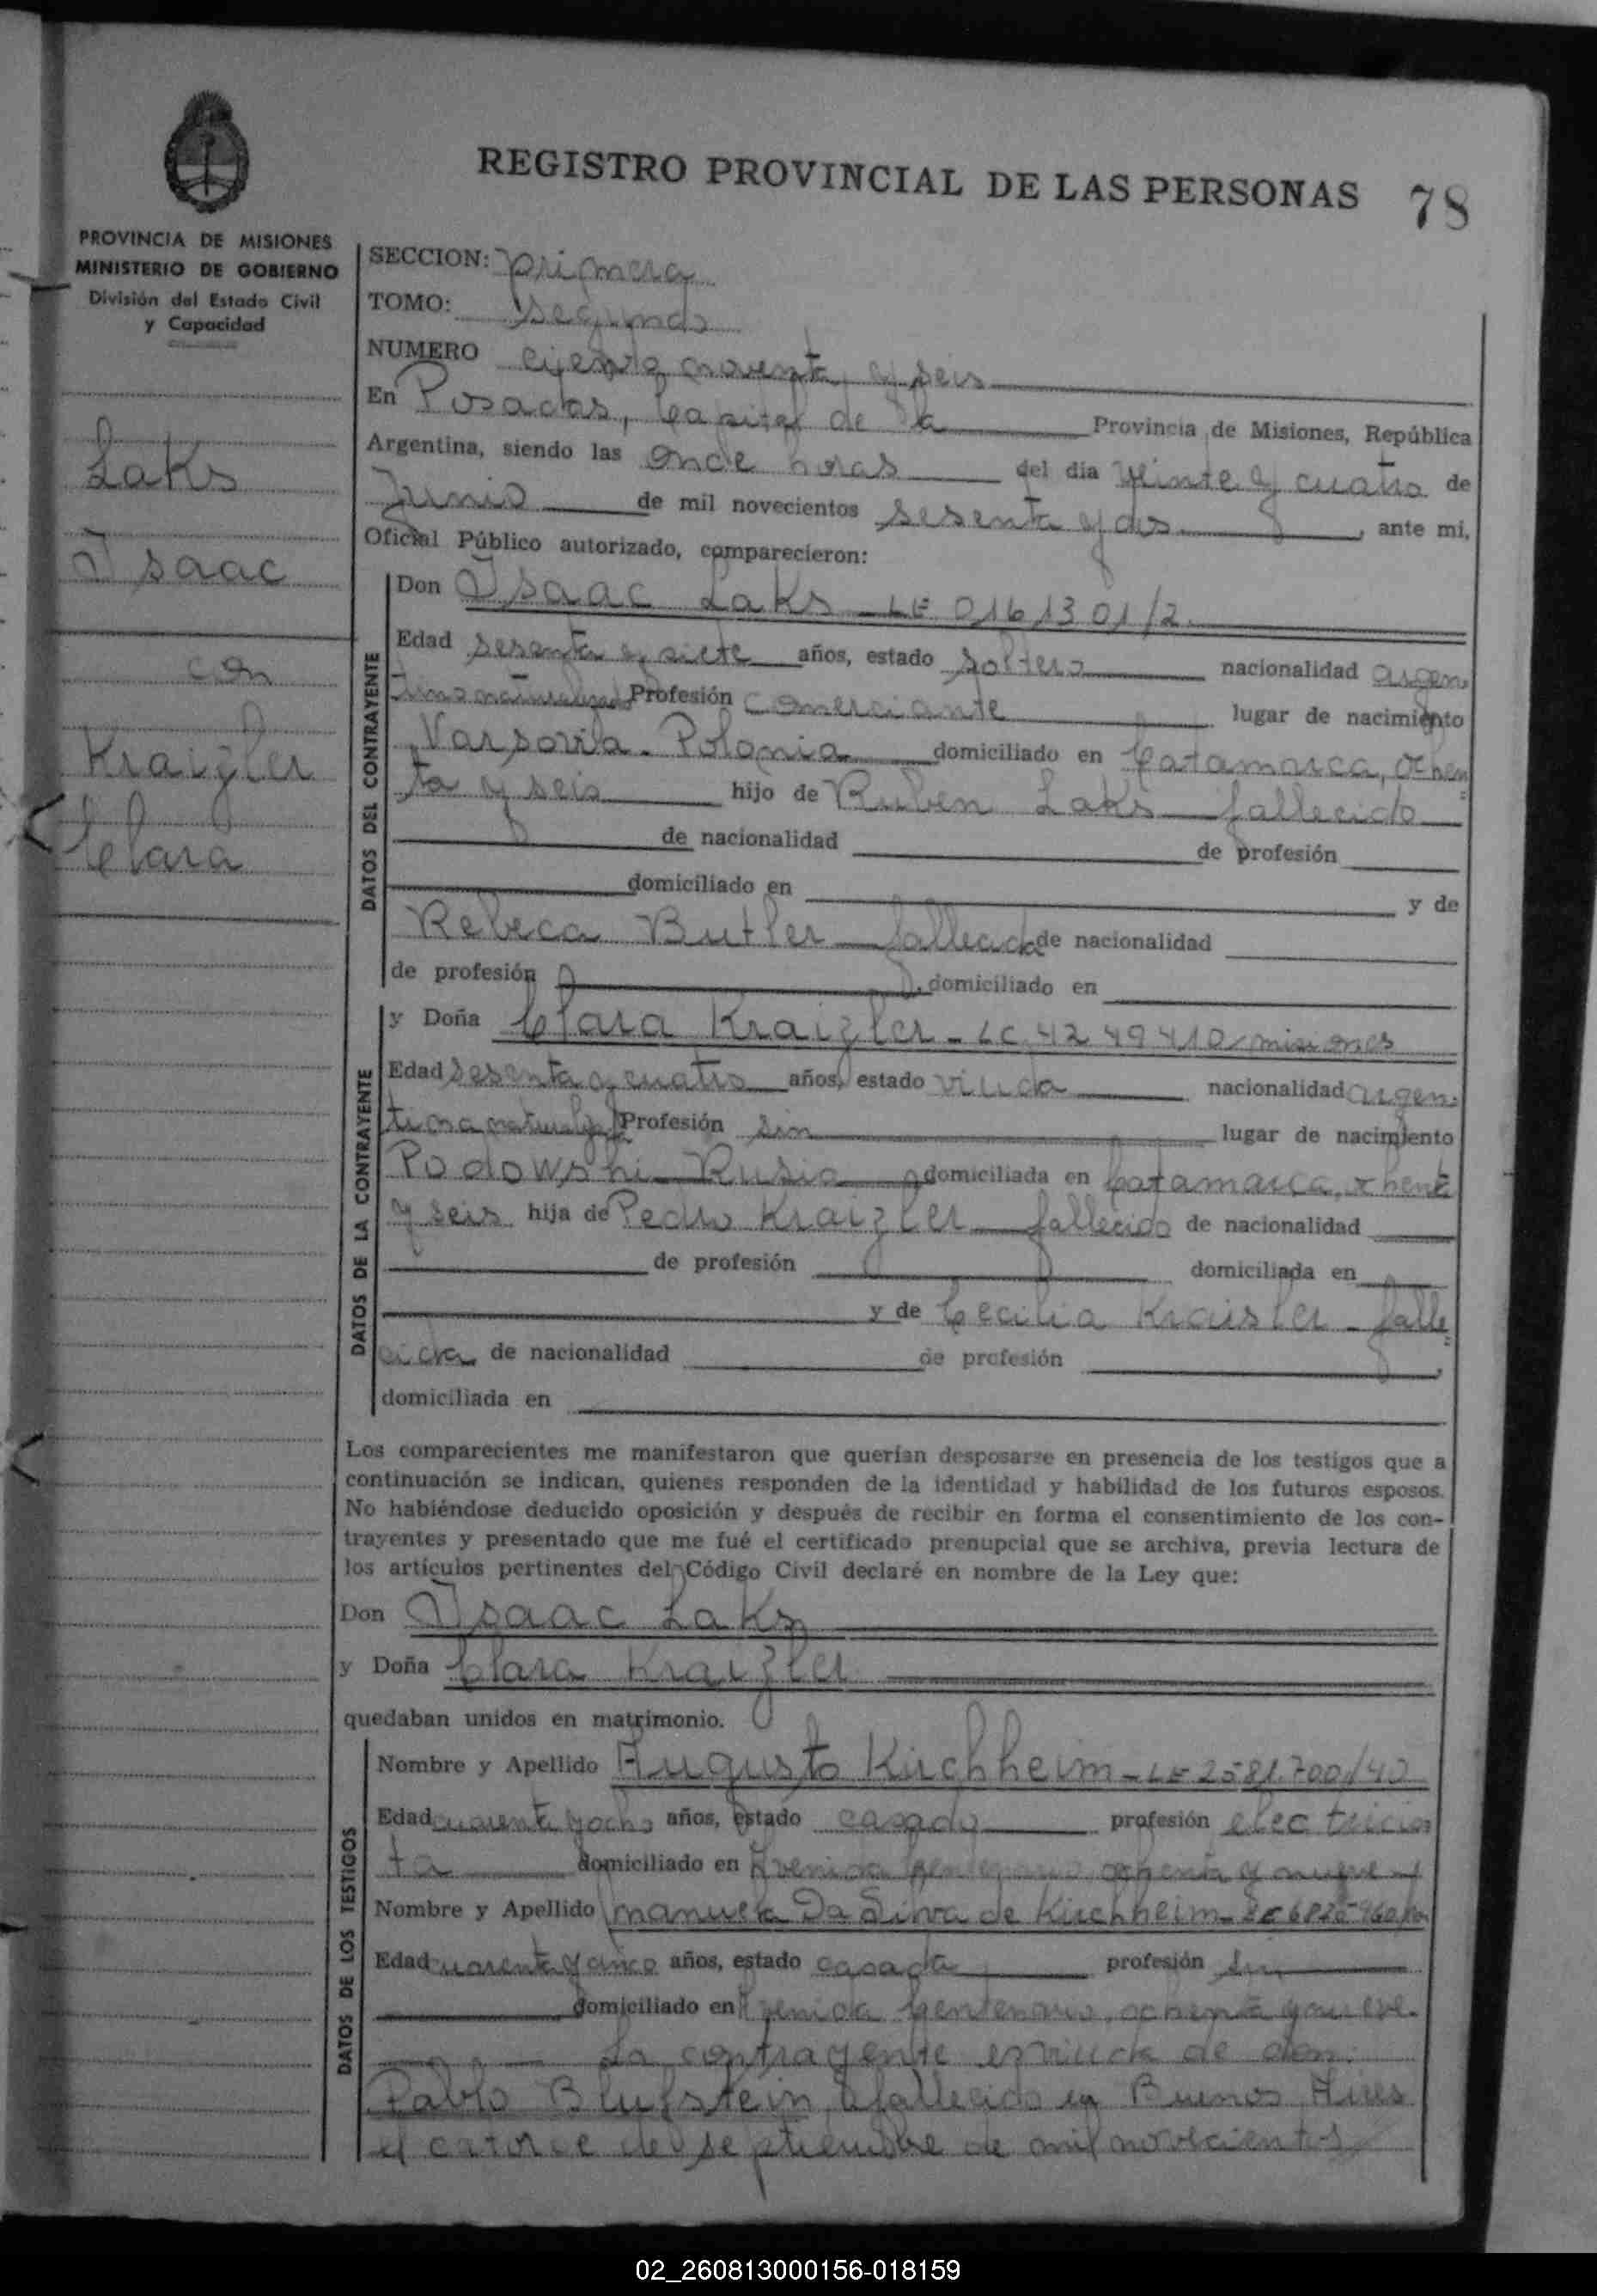 REGISTRO PROVINCIAL DE LAS PERSONAS 78
PROVINCIA DE MISIONES
MINISTERIO DE GOBIERNO
División del Estado Civil
y Capacidad
Laks
Isaac
con
Kraizler
Clara
SECCION: primera
TOMO: segundo
NUMERO ciento noventa y seis
En Posadas, Capital de la Provincia de Misiones, República
Argentina, siendo las once horas del día veinte y cuatro de
Junio de mil novecientos sesenta y dos, ante mi,
Oficial Público autorizado, comparecieron:
DATOS DEL CONTRAYENTE
Don Isaac Laks - LE 0161301/2
Edad sesenta y siete años, estado soltero nacionalidad argen
tino naturalizado Profesión Comerciante lugar de nacimiento
Varsovia - Polonia domiciliado en Catamarca, ochen
ta y seis hijo de Ruben Laks fallecido
de nacionalidad de profesión
domiciliado en y de
Rebeca Butler fallecida de nacionalidad
de profesión , domiciliado en
DATOS DE LA CONTRAYENTE
y Doña Clara Kraizler - LC 4249410 misiones
Edad sesenta y cuatro años, estado viuda nacionalidad argen
tina Profesión sin lugar de nacimiento
Podowshi - Rusia domiciliada en Catamarca, ochenta
y seis hija de Pedro Kraizler fallecido de nacionalidad
de profesión domiciliada en
y de Cecilia Kraisler - falle
cida de nacionalidad de profesión ,
domiciliada en
Los comparecientes me manifestaron que querían desposarse en presencia de los testigos que a
continuación se indican, quienes responden de la identidad y habilidad de los futuros esposos.
No habiéndose deducido oposición y después de recibir en forma el consentimiento de los con-
trayentes y presentado que me fué el certificado prenupcial que se archiva, previa lectura de
los artículos pertinentes del Código Civil declaré en nombre de la Ley que:
Don Isaac Laks
y Doña Clara Kraizler
quedaban unidos en matrimonio.
DATOS DE LOS TESTIGOS
Nombre y Apellido Augusto Kirchheim - LE 2581.700/40
Edad cuarenta y ocho años, estado casado profesión electricis
ta domiciliado en Avenida Centenario ochenta y nueve
Nombre y Apellido Manuela Da Silva de Kirchheim
Edad cuarenta y cinco años, estado casada profesión sin
domiciliado en Avenida Centenario, ochenta y nueve.
La contrayente es viuda de don
Pablo Blufstein, fallecido en Buenos Aires
el catorce de septiembre de mil novecientos
02_260813000156-018159